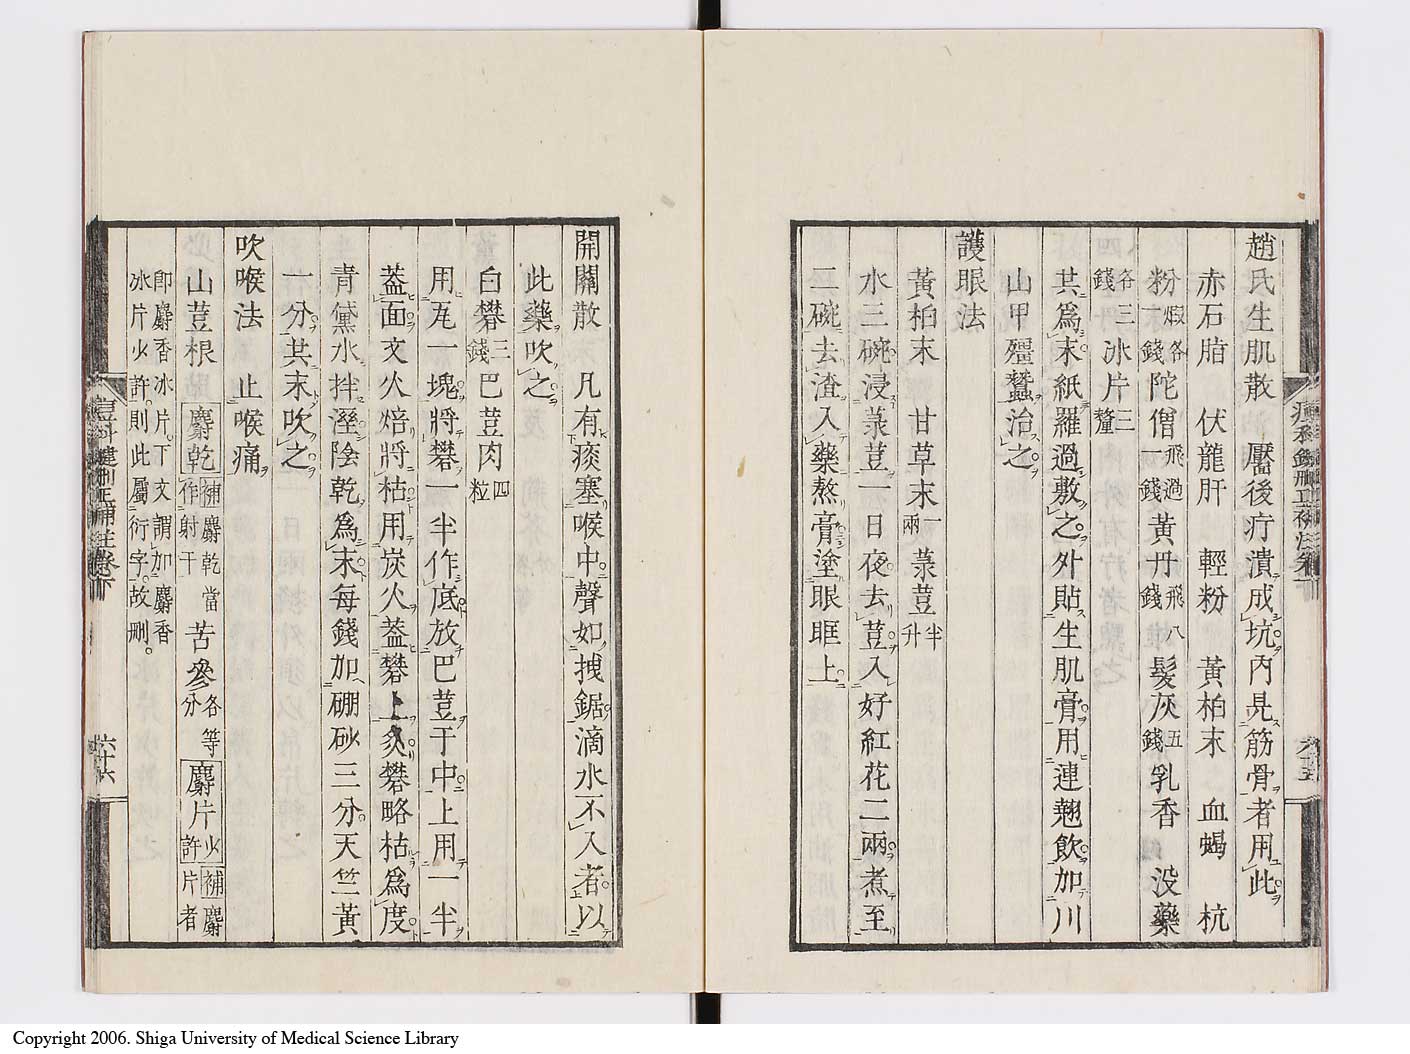 趙氏生肌散　靨後疔潰成坑內見筋骨者用此
赤石脂　伏龍肝　輕粉　黃柏末　血蝎　杭
粉煆各錢陀僧飛過一錢黃丹飛八錢髮灰五錢乳香　沒藥
各三錢冰片三釐
共為末紙羅過敷之外貼生肌膏用連翹飲加川
山甲殭蠶治之
護眼法
黃柏末　甘草末一兩　菉荳半升
水三碗浸菉荳一日夜去荳入好紅花二兩煮至
二碗去渣入藥熬膏塗眼眶上
開關散　凡有痰塞喉中聲如拽鋸滴水不入者以
此藥吹之
白礬三錢巴荳肉四粒
用瓦一塊將礬一半作底放巴荳于中上用一半
蓋面文火焙將枯用炭火蓋礬上炙礬略枯為度
青黛水拌溼陰乾為末每錢加硼砂三分天竺黃
一分共末吹之
吹喉法　止喉痛
山荳根　麝乾補麝乾當作射干　苦參各等分　麝片少許補麝片者
即麝香冰片下文謂加麝香
冰片少許則此屬衍字故刪
六十六
Copyright 2006. Shiga University of Medical Science Library